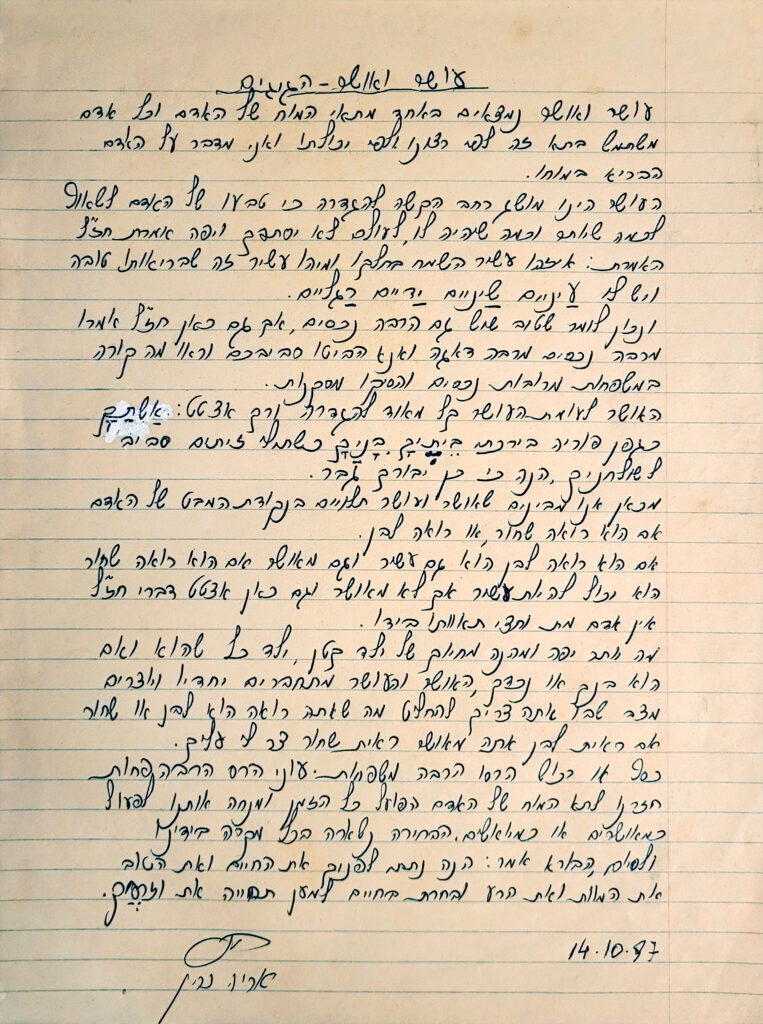 עושר ואושר - הגיגים
עושר ואושר נמצאים באחד מתאי המוח של האדם וכל אדם
משתמש בתא זה לפי רצונו ולפי יכולתו ואני מדבר על האדם
הבריא במוחו.
העושר הינו מושג רחב הקשה להגדרה כי טבעו של האדם לשאוף
לכמה שיותר וכמה שיהיה לו, לעולם לא יסתפק ויפה אמרת חז"ל
האמרת: איזהו עשיר השמח בחלקו ומיהו עשיר זה שבריאותו טובה
ויש לו עיניים שיניים ידיים רגליים.
ונכון לומר שטוב שיש גם הרבה נכסים, אך גם כאן חז"ל אמרו
מרבה נכסים מרבה דאגה ואנא הביטו סביבכם וראו מה קורה
במשפחות מרובות נכסים והסיקו מסקנות.
האושר לעומת העושר קל מאוד להגדרה ורק אצטט: אשתך
כגפן פוריה בירכתי ביתיך בניך כשתילי זיתים סביב
לשולחניך, הנה כי כן יבורך גבר.
מכאן אנו מבינים שאושר ועושר תלויים בנקודת המבט של האדם
אם הוא רואה שחור, או רואה לבן.
אם הוא רואה לבן הוא גם עשיר וגם מאושר אם הוא רואה שחור
הוא יכול להיות עשיר אך לא מאושר וגם כאן אצטט דברי חז"ל
אין אדם מת וחצי תאוותו בידו.
מה יותר יפה ומהנה מחיוך של ילד קטן, ילד כל שהוא ואם
הוא בנך או נכדך, האושר והעושר מתחברים יחדיו ויוצרים
מצב שבו אתה צריך להחליט מה שאתה רואה הוא לבן או שחור
אם ראית לבן אתה מאושר ראית שחור צר לי עליך.
כסף או רכוש הרסו הרבה משפחות. עוני הרס הרבה פחות
חזרנו לתא המוח של האדם הפועל כל הזמן ומנחה אותנו לפעול
כמאושרים או כמיואשים. הבחירה נשארה בכל מקרה בידינו
ולסיום, הבורא אמר: הנה נתתי לפניך את החיים ואת הטוב
את המוות ואת הרע ובחרת בחיים למען תחייה את וזרעך.
14.10.97